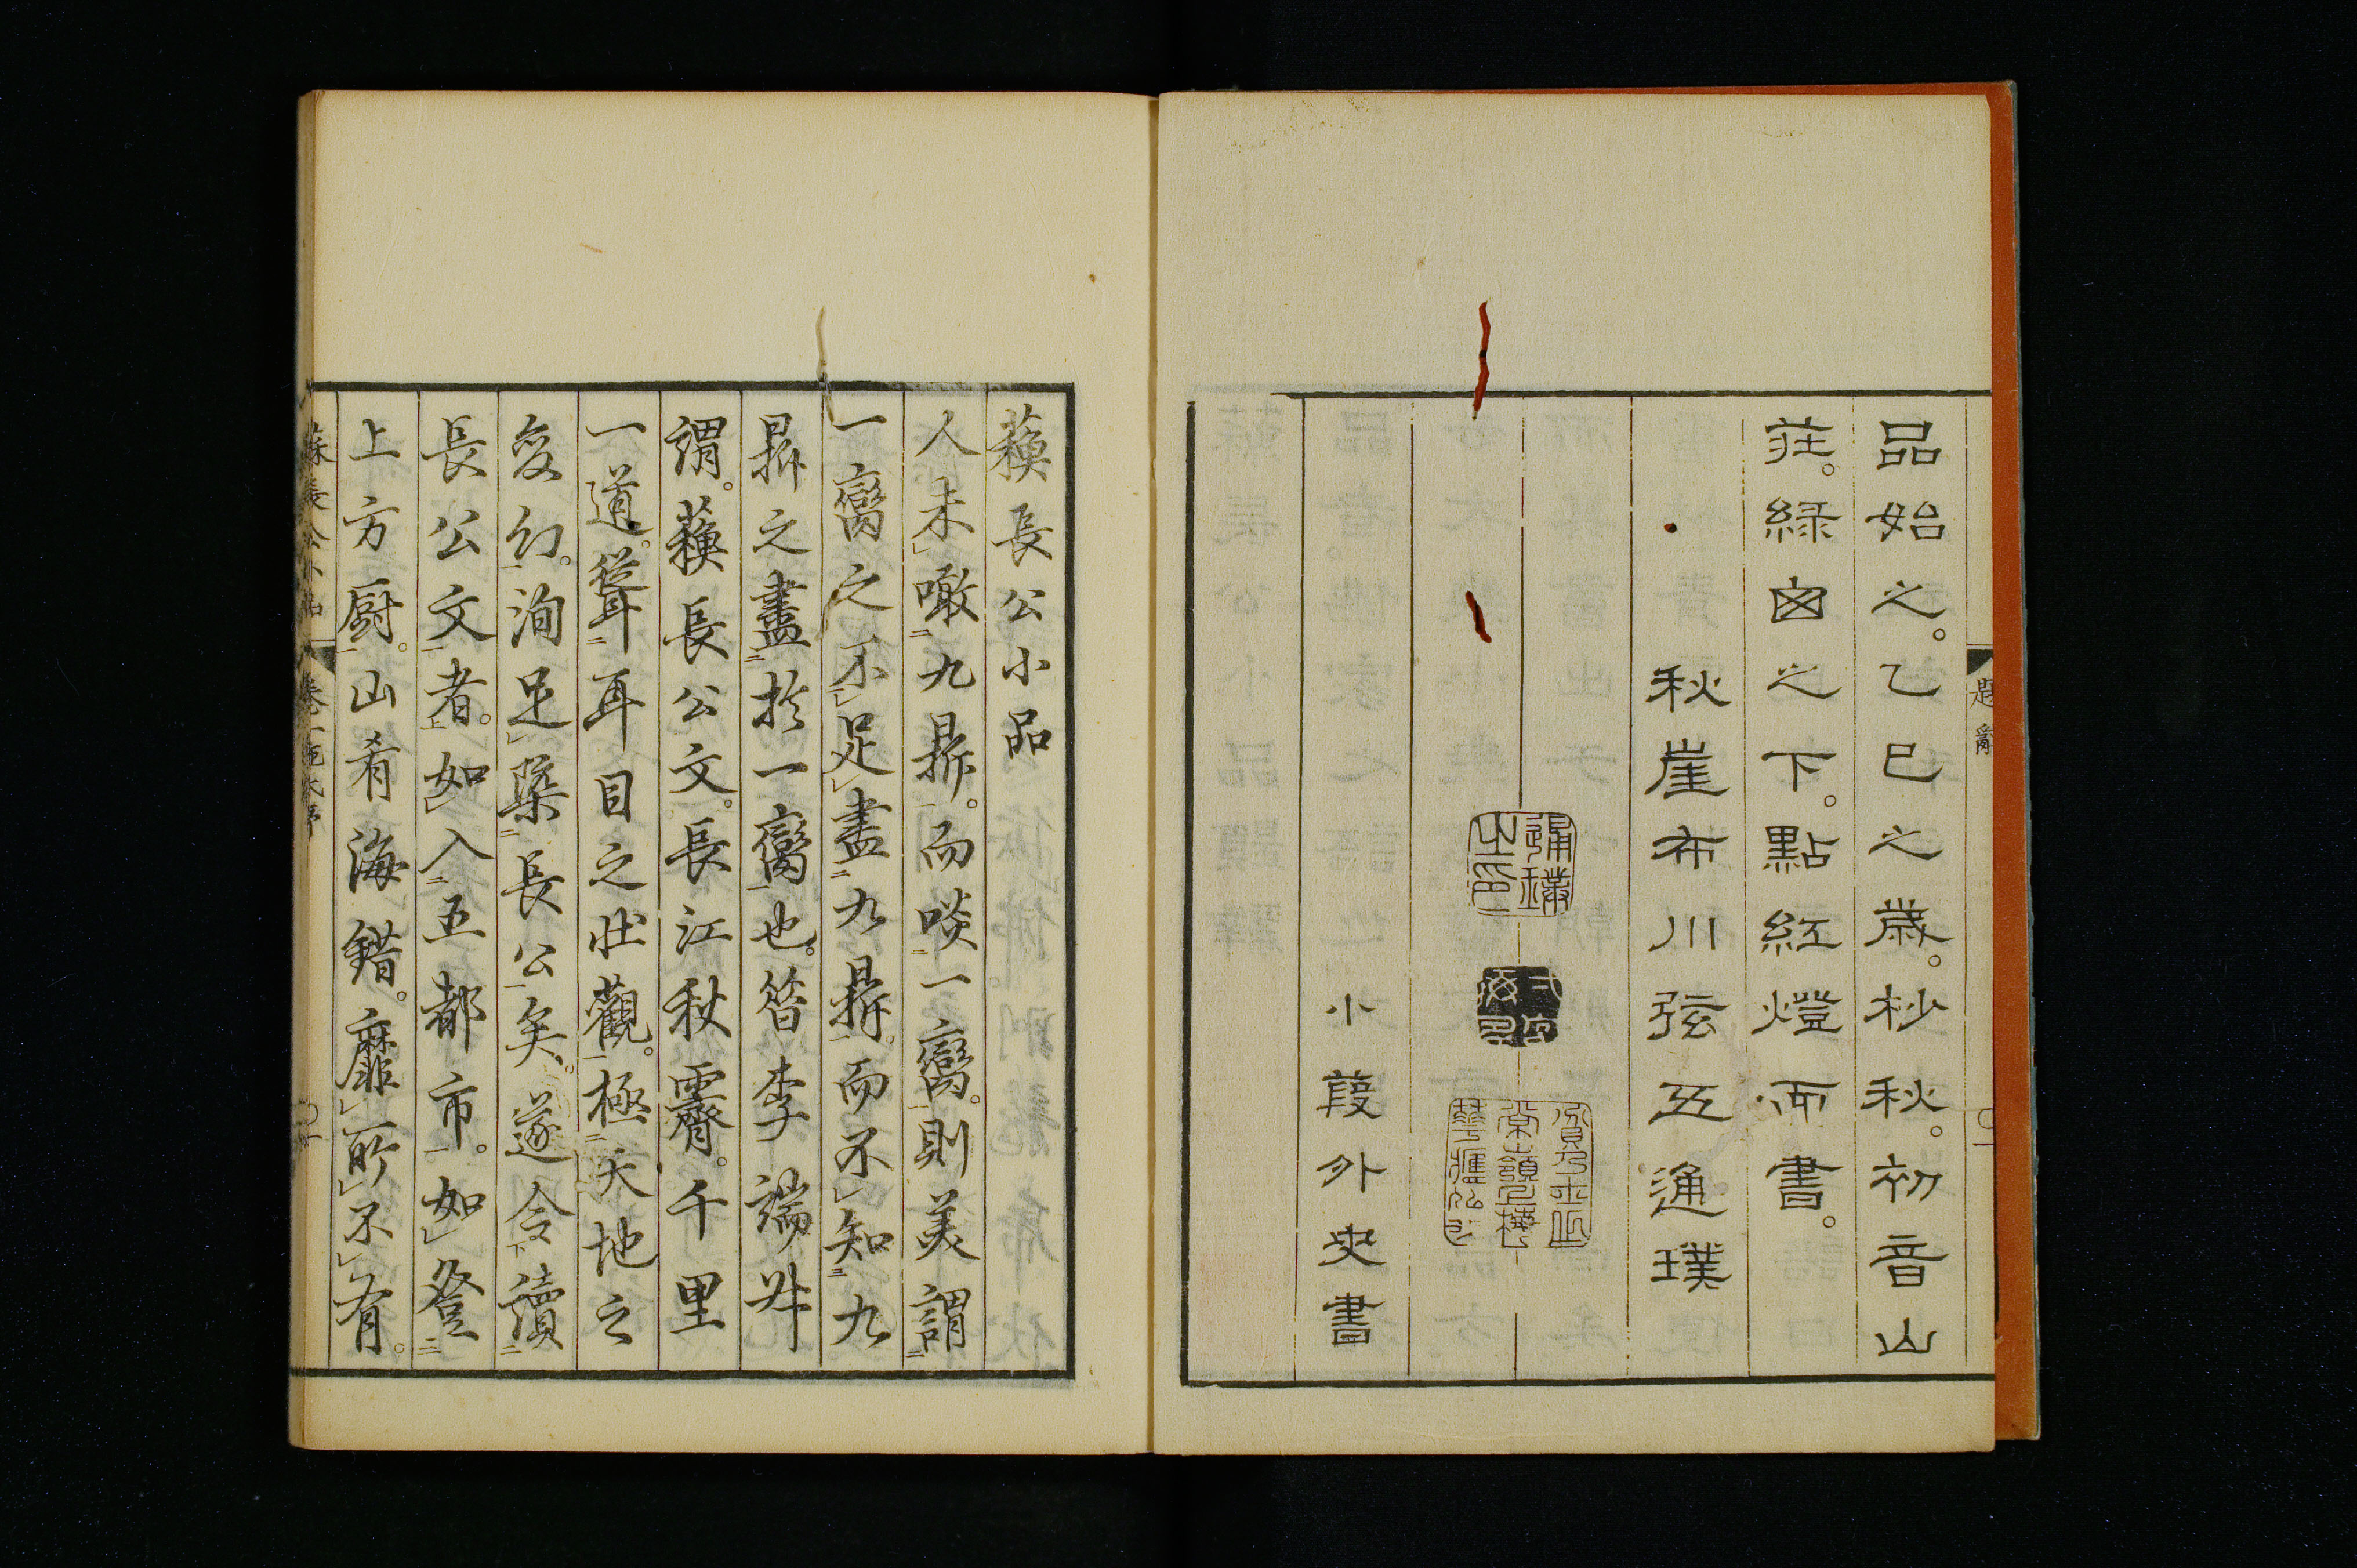 品始之。乙巳之歳。杪秋。初音山
莊。緑囪之下。點紅燈而書。
秋崖布川弦五通璞
通璞
之印
小葭外史書
題辭
蘓長公小品
人未噉九鼎。而啖一臠。則美謂
一臠之不足盡九鼎。而不知九
鼎之盡於一臠也。昝李端叔
謂。蘓長公文。長江秋霽。千里
一道。聳耳目之壯觀。極天地之
变幻。洵足槩長公矣。遂令讀
長公文者。如入五都市。如登
上方厨。山肴海錯。靡所不有。